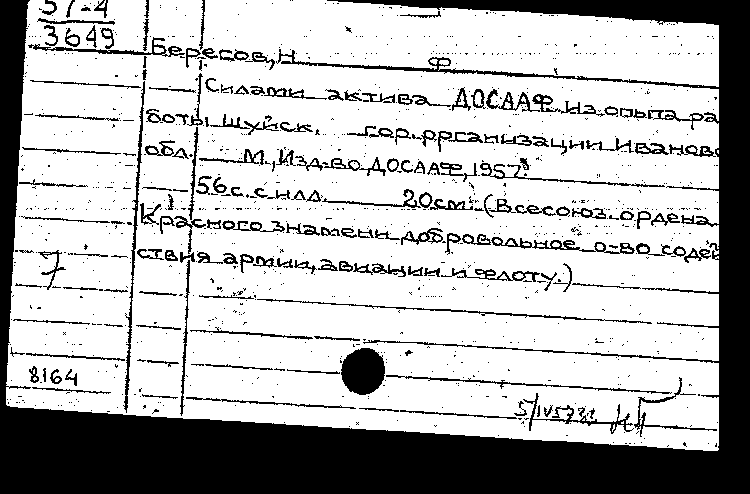 57-4
3649
Бересов, Н Ф
Силами актива ДОСААФ. Из опыта ра
боты Шуйск. гор.ррганизации Иванов
обл. М., Изд-во ДОСААФ, 1957.
56 с. с илл. 20см. (Всесоюз. ордена
Красного знамени добровольное о-во содей
ствия армии, авиации и флоту.)
7
8164